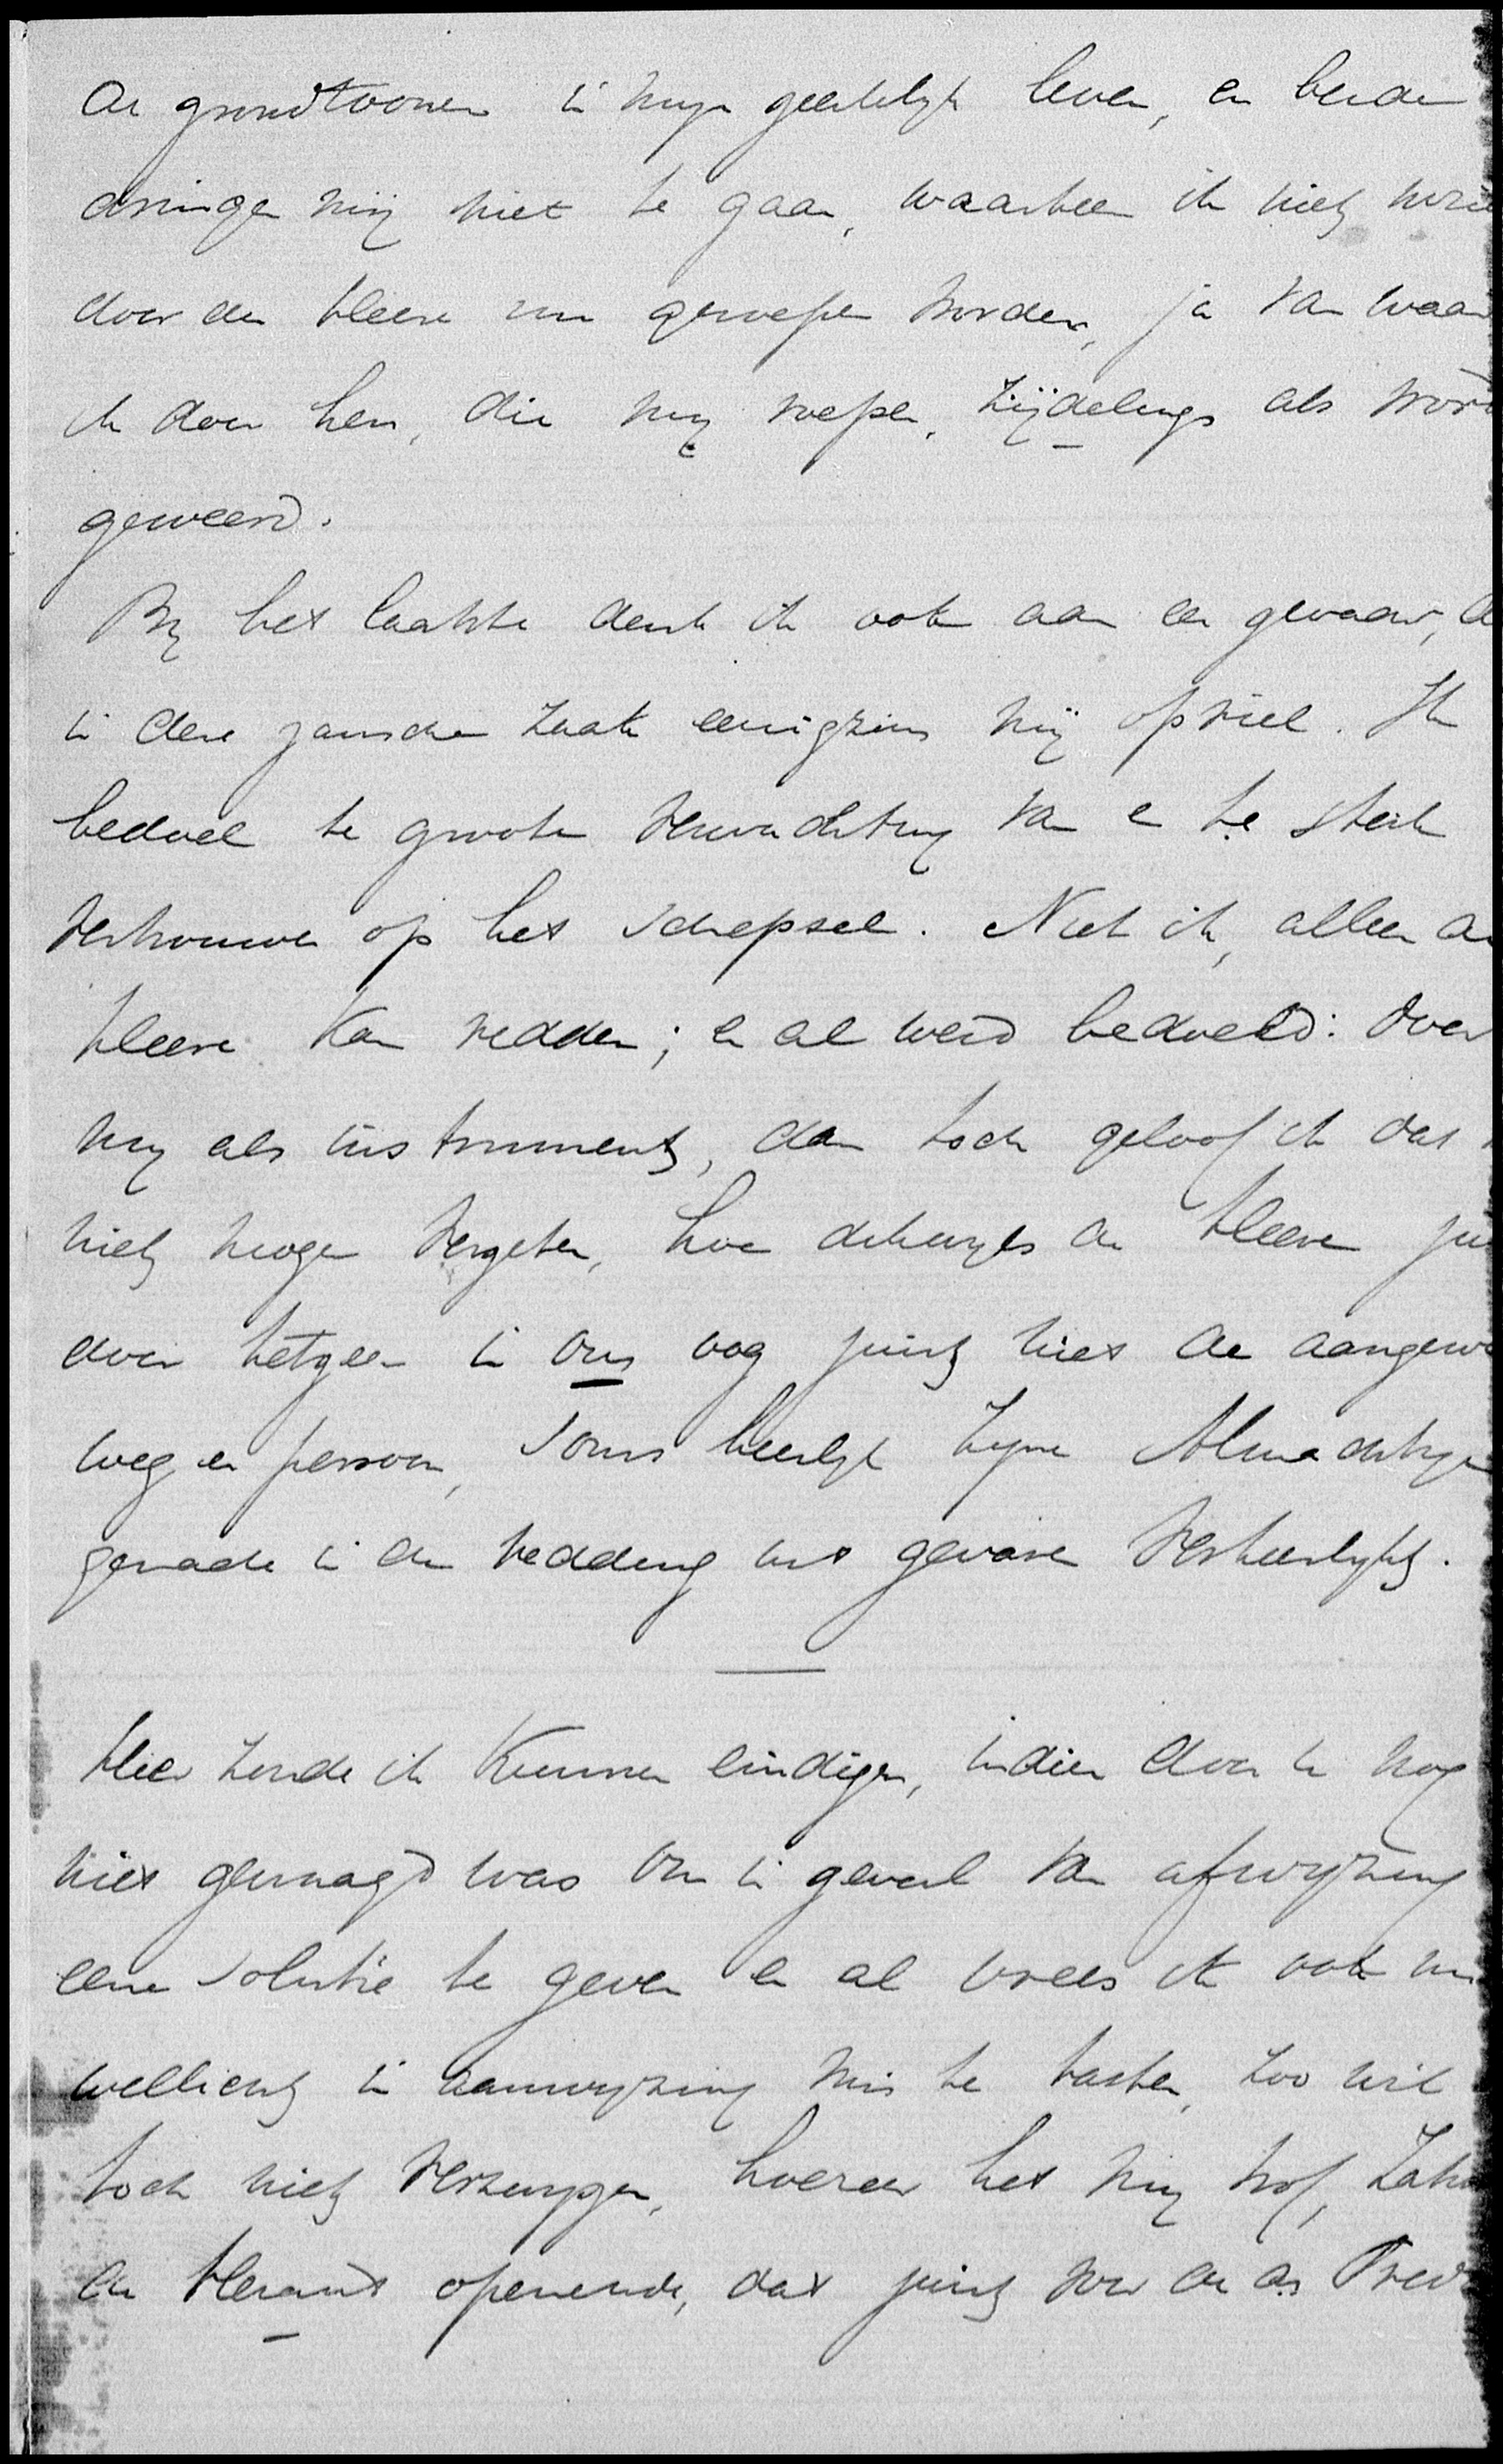 de grondtoonen in mijn geestelijk leven, en beiden
dringen mij niet te gaan, waarheen ik niet
door den Heere zou geroepen worden, ja van waar
ik door hen, die mij roepen, zijdelings als
geweerd.
Bij het laatste denk ik ook aan een gevaar,
in deze gansche zaak eenigzins mij opviel. Ik
bedoel te groote verwachting van en te sterk
vertrouwen op het schepsel. Niet ik, alleen de
Heere kan redden; en al werd bedoeld: door
mij als instrument, dan toch geloof ik dat
niet mogen vergeten, hoe dikwijls de Heere
door hetgeen in ons oog juist niet de
weg en persoon, soms heerlijk Zijne Almachtige
genade in de redding uit gevaren verheerlijkt.
Hier zoude ik kunnen eindigen, indien door U nog
niet gevraagd was om in geval van afwijzing
eene solutie te geven en al vrees ik ook nu
wellicht in aanwijzing mis te tasten, zoo wil
toch niet verzwijgen, hoezeer het mij trof,
de Heraut openende, dat juist voor de Ds